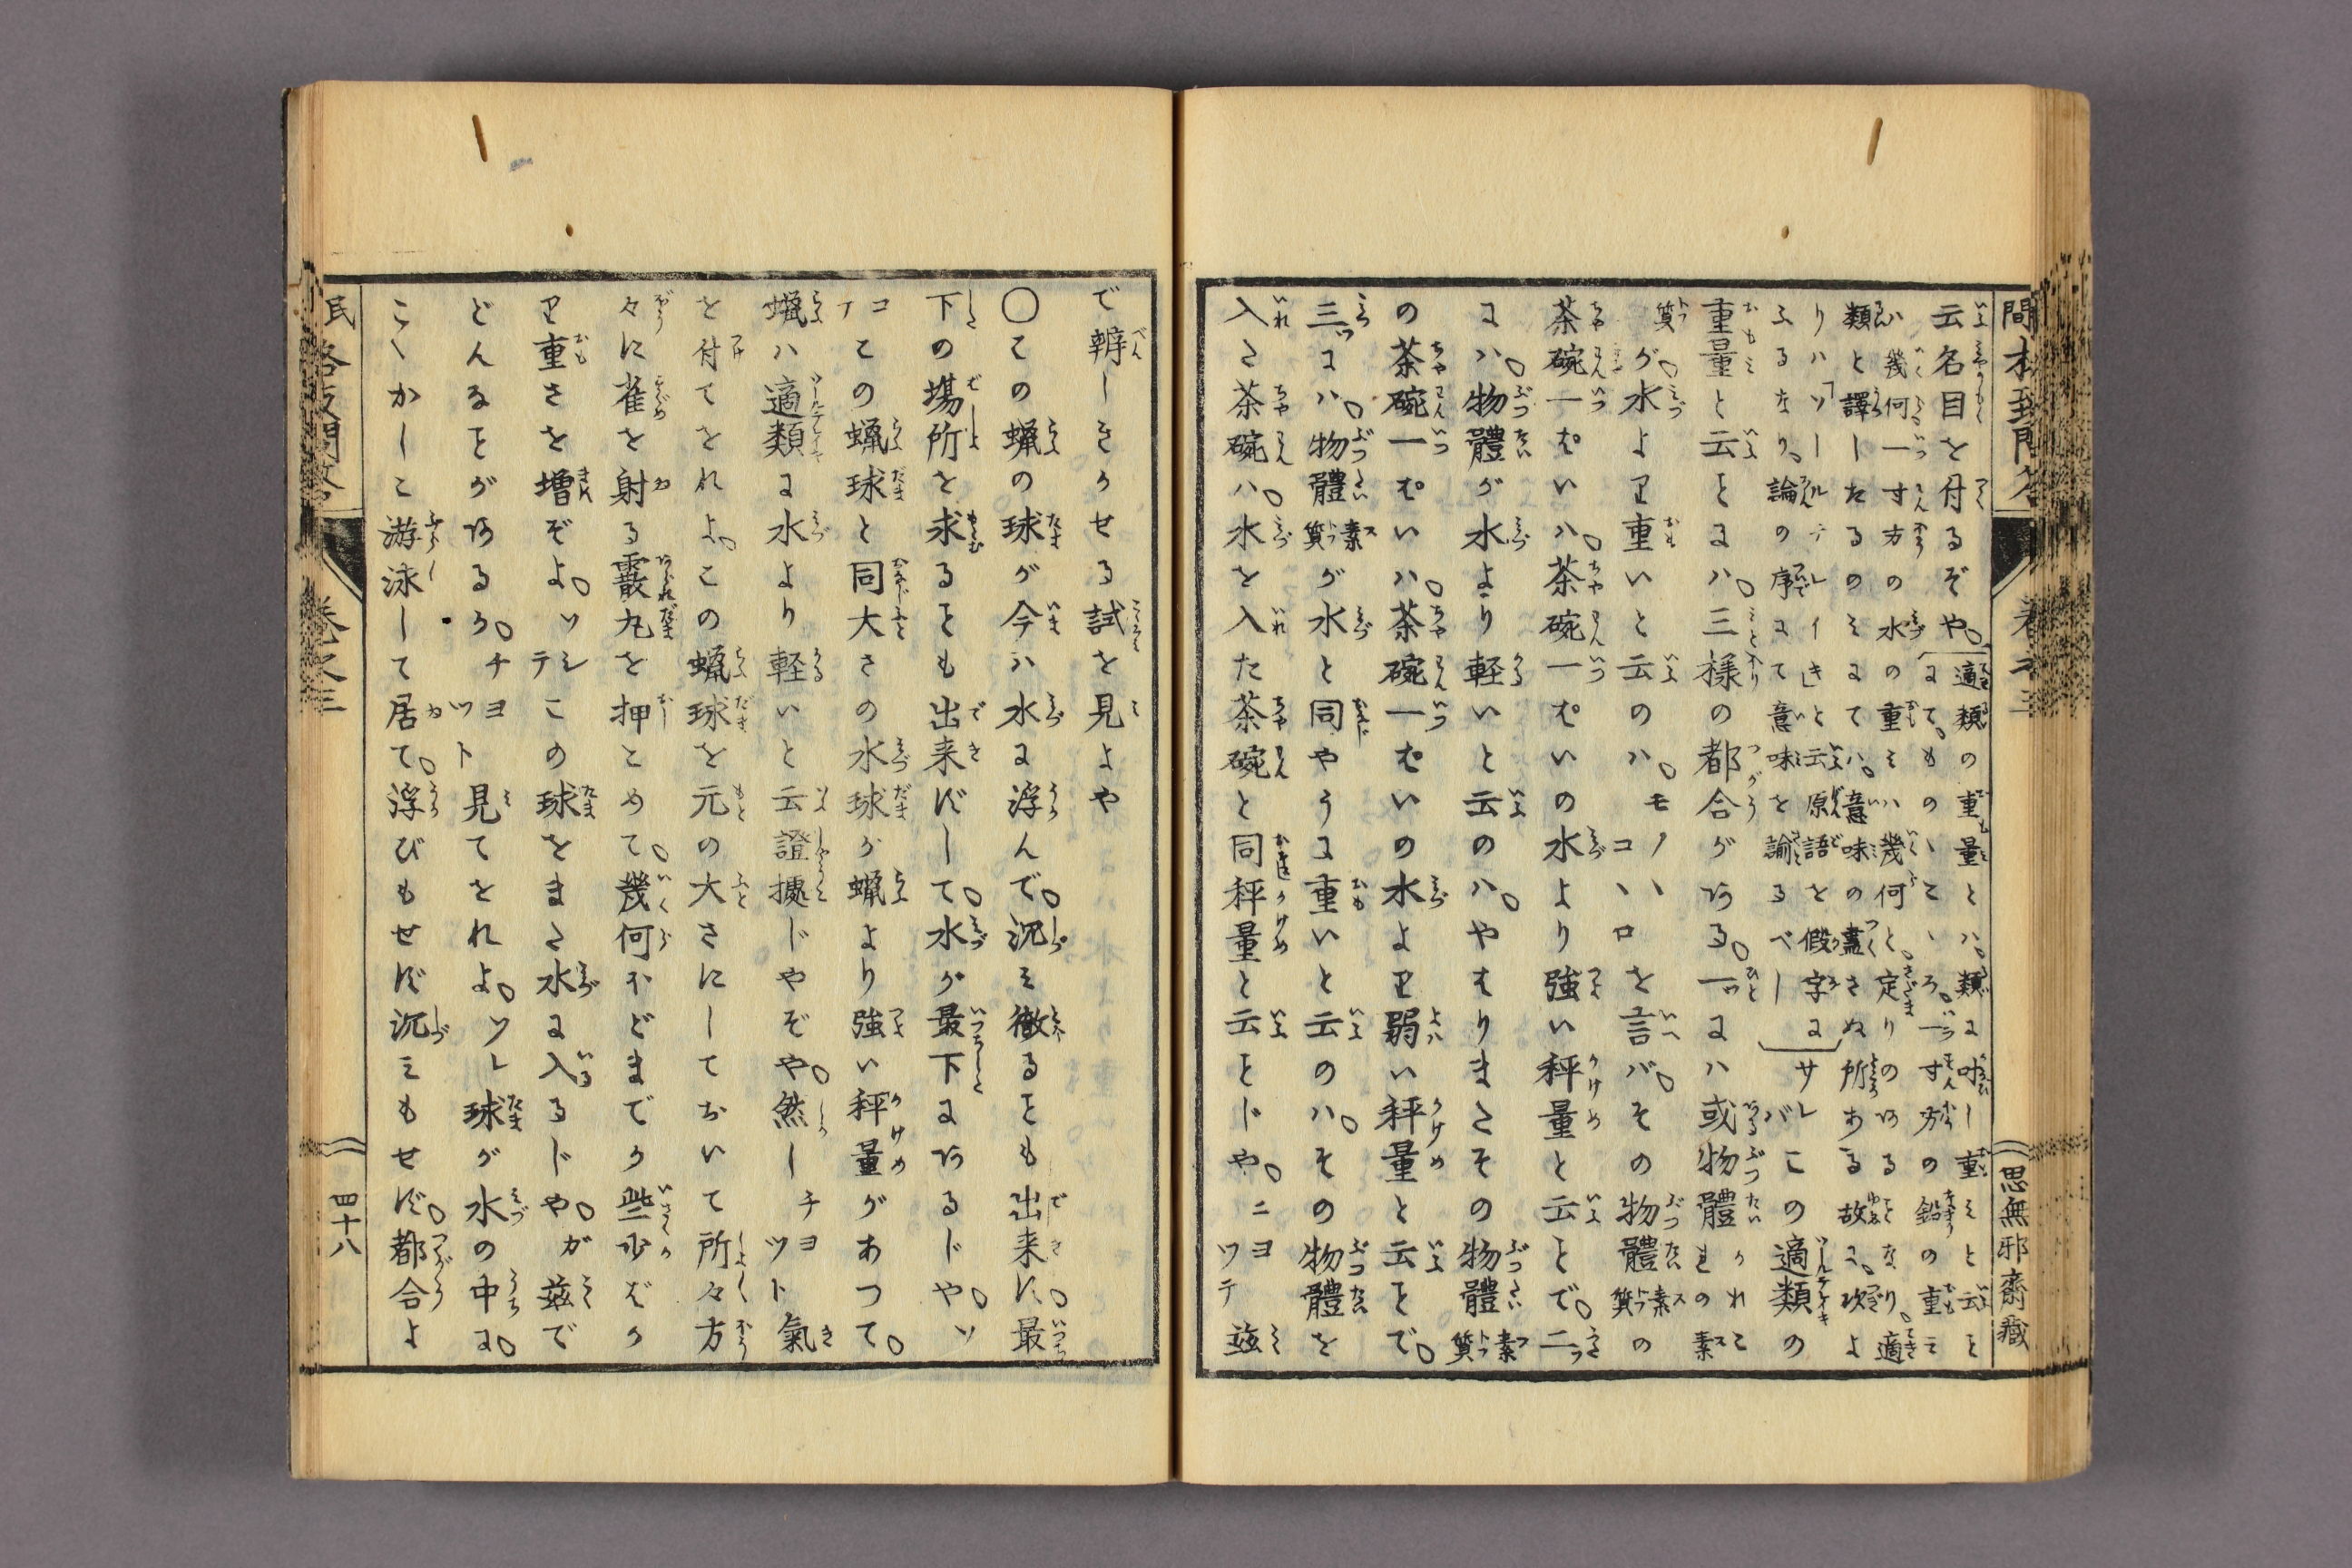 云名目を付るぞや。適類の重量とハ。類に叶し重ミと云こと
にて。ものゝいところ。一寸方の鉛の重ミ
ハ幾何一寸方の水の重ミハ幾何と。定りのあることなり。適
類と譯したるのミにてハ。意味の盡さぬ所ある故に。次よ
りハ「ソールテレイキ」と云原語を假字に
ふるなり。論の序にて意味を諭るべし
サレバこの適類の
重量と云ことにハ。三様の都合がある。一ツにハ或物體其の素
質が。水より重いと云のハ。モノヽコヽロを言バ。その物體素質の
茶碗一はいハ。茶碗一はいの水より強い秤量と云とで。二ツ
にハ。物體が水より軽いと云のハ。やはりまたその物體素質
の茶碗一はいハ。茶碗一はいの水より弱い秤量と云ことで。
三ツにハ。物體素質が水と同やうに重いと云のハ。その物體を
入た茶碗ハ。水を入た茶碗と同秤量と云ことじや。ニヨツテ茲
思無邪齋藏
で辨しきかせる試を見よや
〇この蝋の球が今ハ水に浮んで。沉ミ徹ることも出来ず。最
下の塲所を求ることも出来ずして。水が最下にあるじや。ソ
コナこの蝋球と同大さの水球が蝋より強い秤量があつて。
蝋ハ適類に水より軽いと云證據じやぞや。然しチヨツト氣
を付てをれよ。この蝋球を元の大さにしておいて所々方
々に雀を射る霰丸を押とめて。幾何ほどまでか些少ばか
り重さを増ぞよ。ソシテこの球をまた水に入るじや。が茲で
どんなことがあるか。チヨツト見てをれよ。ソレ球が水の中に。
こゝかしこ游泳して居て。浮びもせず沉ミもせず。都合よ
卷之三
四十八